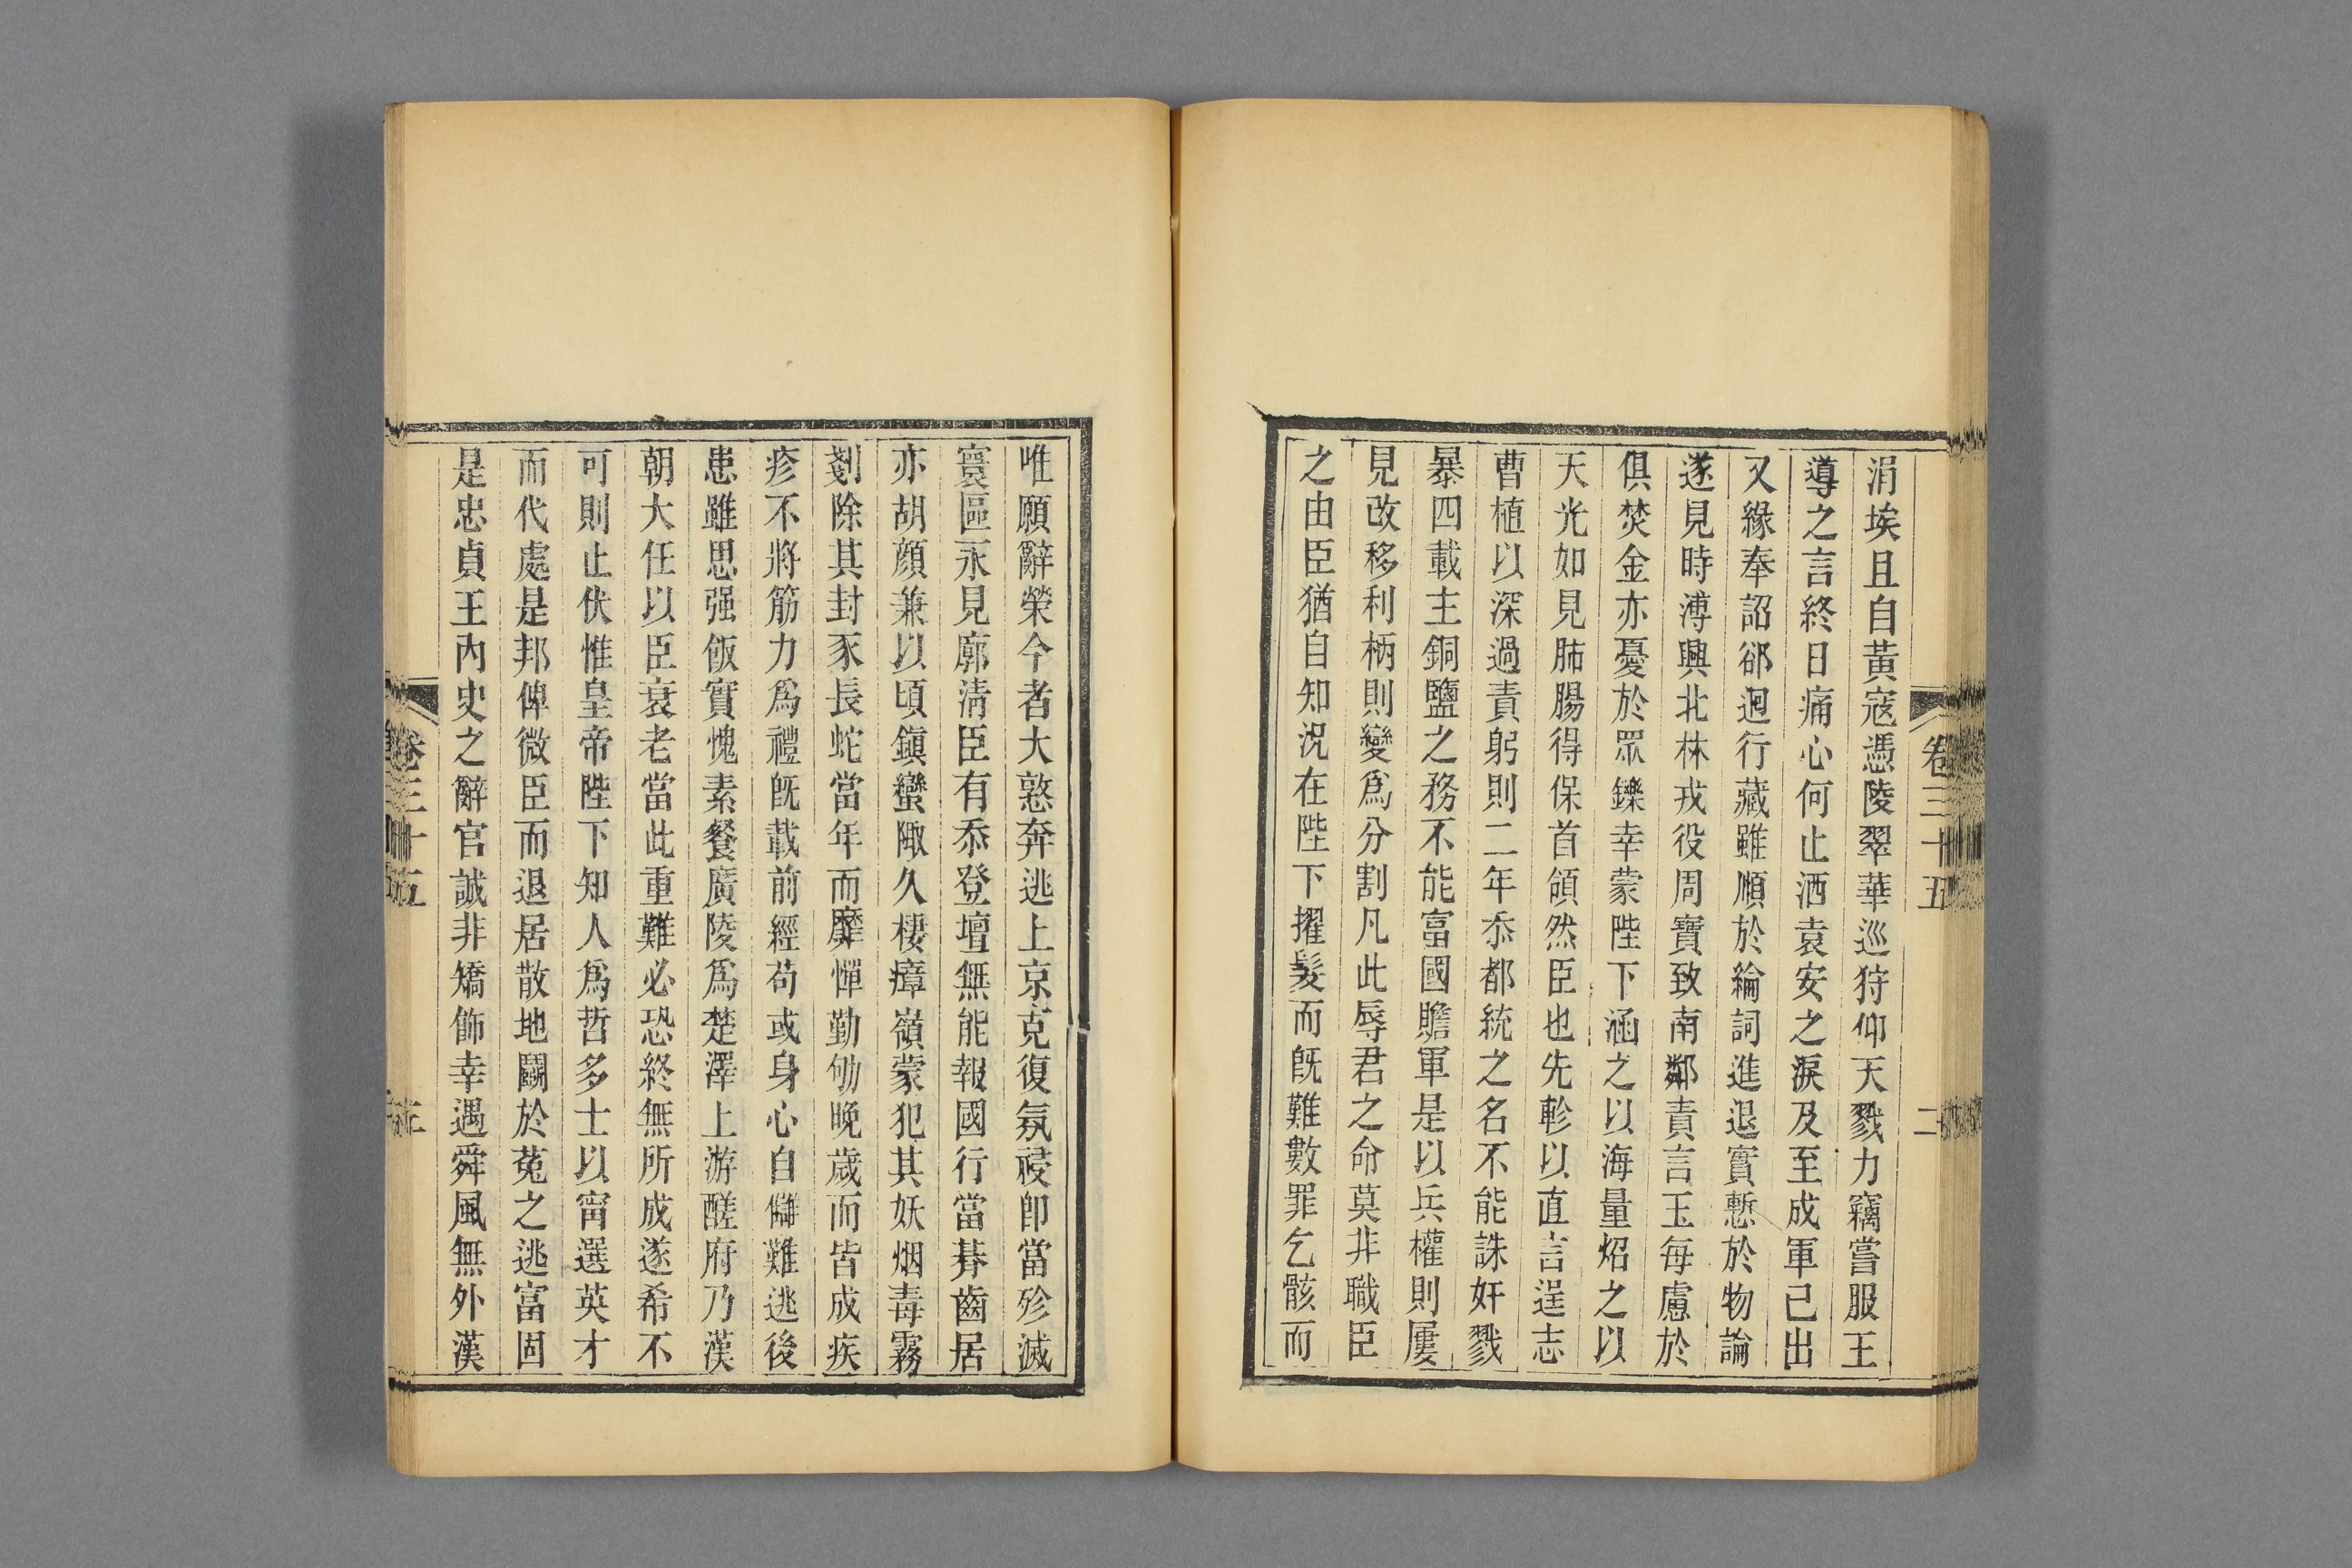 卷三十五
二
涓埃且自黃寇憑陵翠華巡狩仰天戮力竊嘗服王
導之言終日痛心何止洒袁安之淚及至成軍已出
又緣奉詔郤迴行藏雖順於綸詞進退實慙於物論
遂見時溥興北林戎役周寶致南鄰責言玉每慮於
俱焚金亦憂於眾鑠幸蒙陛下涵之以海量炤之以
天光如見肺腸得保首領然臣也先軫以直言逞志
曹植以深過責躬則二年忝都統之名不能誅奸戮
暴四載主銅鹽之務不能富國贍軍是以兵權則屢
見改移利柄則變爲分割凡此辱君之命莫非職臣
之由臣猶自知況在陛下擢髮而旣難數罪乞骸而
唯願辭榮今者大憝奔逃上京克復氛祲卽當殄滅
寰區永見廓淸臣有忝登壇無能報國行當朞齒居
亦胡顔兼以頃鎭蠻陬久棲瘴嶺蒙犯其妖烟毒霧
剗除其封豕長蛇當年而靡憚勤劬晚歲而皆成疾
疹不將筋力爲禮旣載前經苟或身心自讎難逃後
患雖思强飯實愧素餐廣陵爲楚澤上游醝府乃漢
朝大任以臣衰老當此重難必恐終無所成遂希不
可則止伏惟皇帝陛下知人爲哲多士以甯選英才
而代處是邦俾微臣而退居散地鬬於菟之逃富固
是忠貞王內史之辭官誠非矯飾幸遇舜風無外漢
卷三十五
三